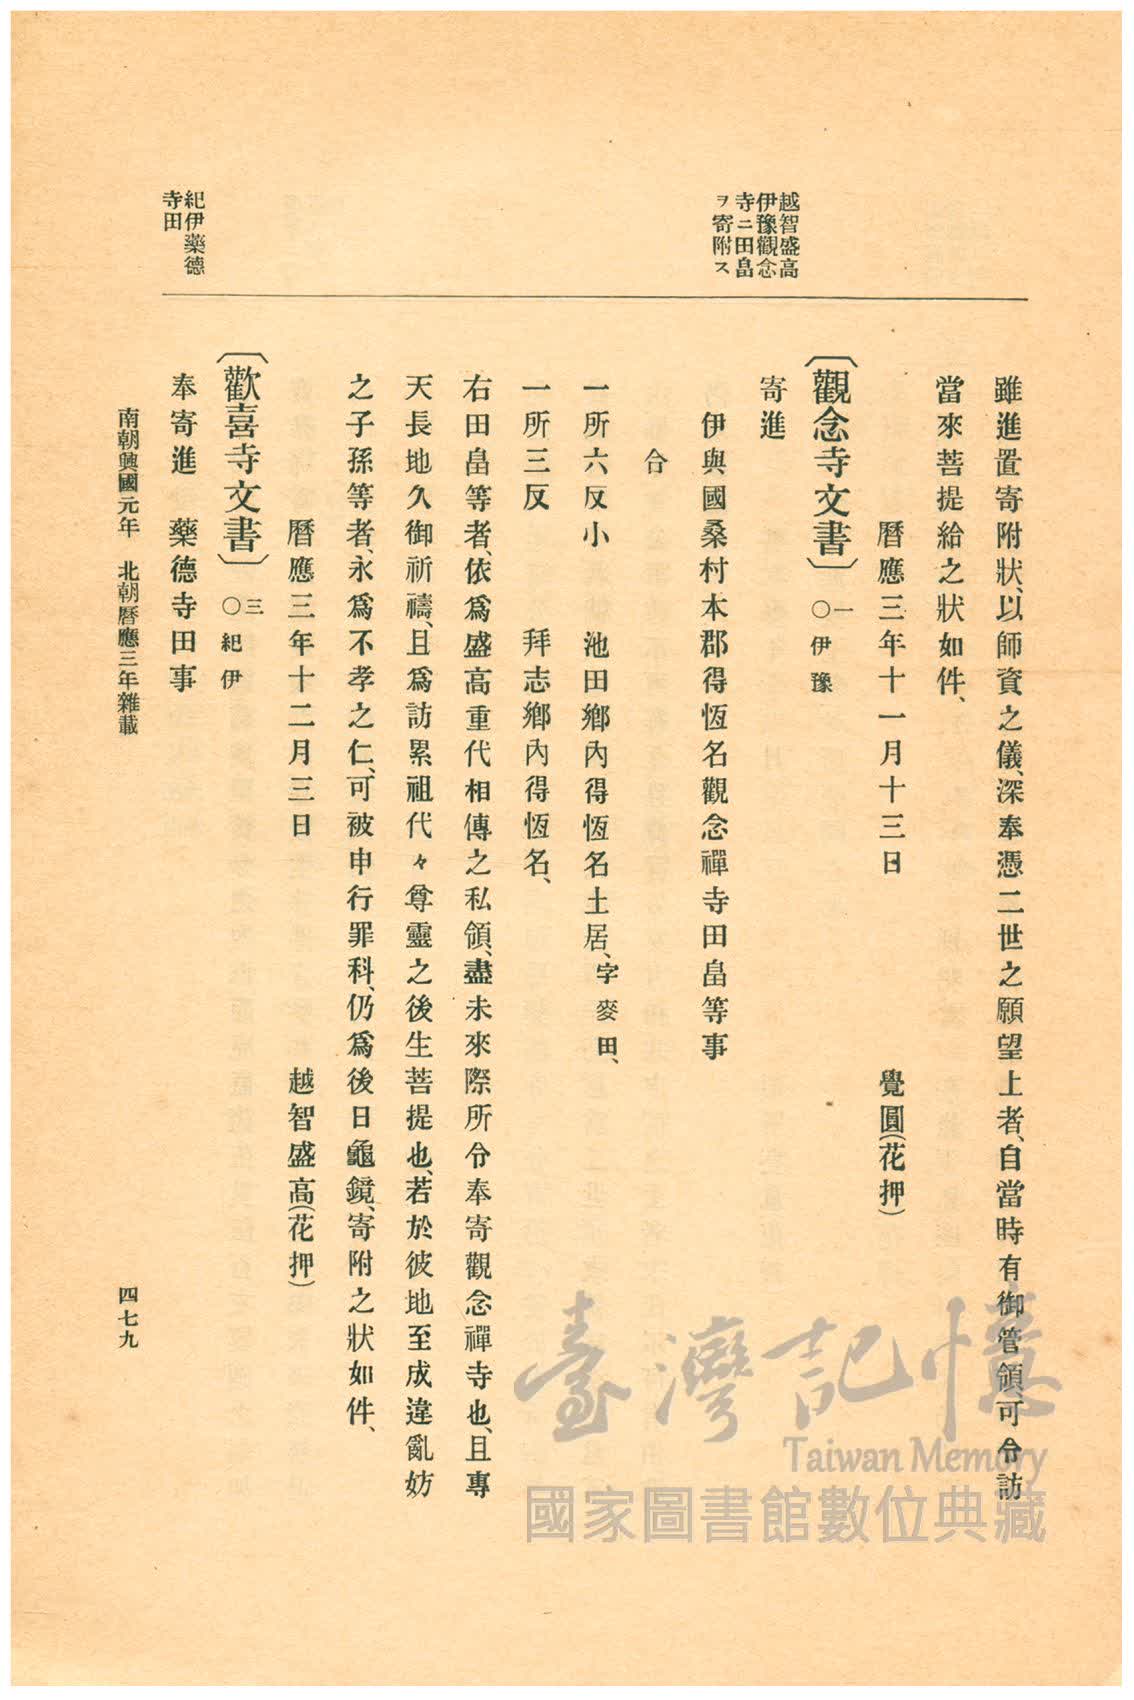 越智盛高
伊豫觀念
寺ニ田畠
ヲ寄附ス
紀伊藥德
寺田
雖進置寄附狀、以師資之儀、深奉憑二世之願望上者、自當時有御管領、可令訪
當來菩提給之狀如件、
曆應三年十一月十三日　覺圓(花押)
〔觀念寺文書〕一〇伊豫
寄進
伊與國桑村本郡得恆名觀念禪寺田畠等事
合
一所六反小　池田鄕內得恆名土居、字麥田、
一所三反　拜志鄕內得恆名、
右田畠等者、依爲盛高重代相傳之私領、盡未來際所令奉寄觀念禪寺也、且專
天長地久御祈禱、且爲訪累祖代々尊靈之後生菩提也、若於彼地至成違亂妨
之子孫等者、永爲不孝之仁、可被申行罪科、仍爲後日龜鏡、寄附之狀如件、
曆應三年十二月三日　越智盛高(花押)
〔歡喜寺文書〕三〇紀伊
奉寄進　藥德寺田事
南朝興國元年　北朝曆應三年雜載
四七九
臺灣記憶
Taiwan Memory
國家圖書館數位典藏